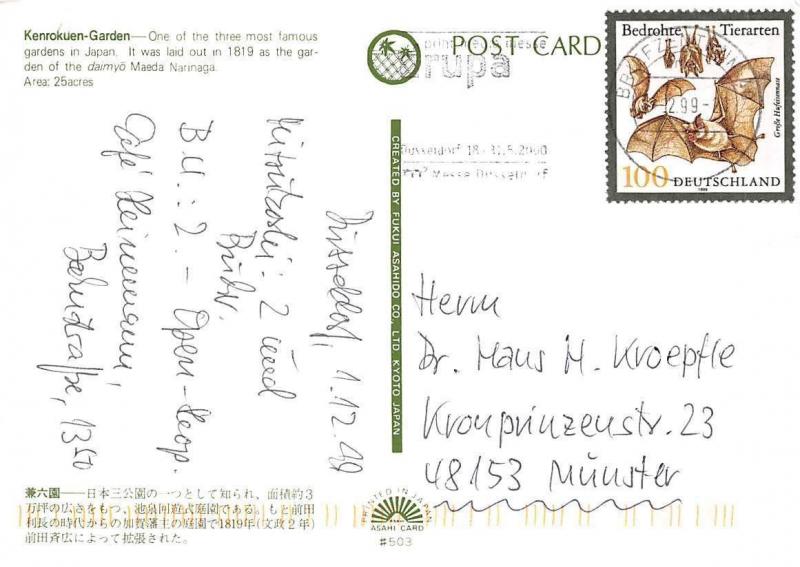 Kenrokuen-Garden—One of the three most famous
gardens in Japan. It was laid out in 1819 as the gar-
den of the daimyō Maeda Narinaga.
Area: 25acres
POST CARD
print media messe
drupa
Düsseldorf 18.-31.5.2000
Messe Düsseldorf
Bedrohte Tierarten
Große Hufeisennase
100 DEUTSCHLAND
1999
2.99-
CREATED BY FUKUI ASAHIDO CO., LTD KYOTO JAPAN
Düsseldorf, 1.12.99
2 und
B.U.: 2. - Open-
Café Heinemann,
Bahnstraße, 1350
Herrn
Dr. Hans M. Kroepfle
Kronprinzenstr. 23
48153 Münster
兼六園——日本三公園の一つとして知られ、面積約3
万坪の広さをもつ、池泉回遊式庭園である。もと前田
利長の時代からの加賀藩主の庭園で1819年(文政2年)
前田斉広によって拡張された。
PRINTED IN JAPAN
ASAHI CARD
#503